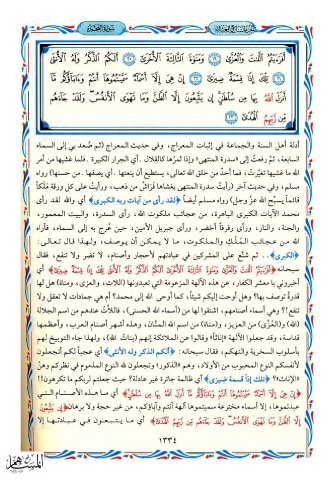 الجزء السابع والعشرون سورة النجم
أَفَرَءَيْتُمُ ٱللَّٰتَ وَٱلْعُزَّىٰ ﴿١٩﴾ وَمَنَوٰةَ ٱلثَّالِثَةَ ٱلْأُخْرَىٰٓ ﴿٢٠﴾ أَلَكُمُ ٱلذَّكَرُ وَلَهُ ٱلْأُنثَىٰ
﴿٢١﴾ تِلْكَ إِذًا قِسْمَةٌ ضِيزَىٰٓ ﴿٢٢﴾ إِنْ هِىَ إِلَّآ أَسْمَآءٌ سَمَّيْتُمُوهَآ أَنتُمْ وَءَابَآؤُكُم مَّآ
أَنزَلَ ٱللَّهُ بِهَا مِن سُلْطَٰنٍ إِن يَتَّبِعُونَ إِلَّا ٱلظَّنَّ وَمَا تَهْوَى ٱلْأَنفُسُ وَلَقَدْ جَآءَهُم
مِّن رَّبِّهِمُ ٱلْهُدَىٰٓ ﴿٢٣﴾
أدلة أهل السنة والجماعة في إثبات المعراج، وفي حديث المعراج (ثم صُعد بي إلى السماء
السابعة، ثمَّ رفعتُ إلى (سدرة المنتهى) وإذا ثمرُها كالقِلال . أي الجرار الكبيرة . فلما غشيها من أمر
الله ما غشيها تغيَّرت، فما أحدٌ من خلق الله تعالى، يستطيع أن ينعتها . أي يصفها . من حسنها) رواه
مسلم، وفي حديث آخر (رأيت سدرة المنتهى يغشاها فَراشٌ من ذهب، ورأيتُ على كل ورقة مَلَكاً
قائماً يسبِّح الله عزَّ وجل) رواه مسلم أيضاً ﴿لقد رأى من آيات ربه الكبرى﴾ أي والله لقد رأى
محمد الآيات الكبرى الباهرة، من عجائب ملكوت الله، رأى السدرة، والبيت المعمور،
والجنة، والنار، ورأى رفرفاً أخضر، ورأى جبريل الأمين، حين عُرج به إلى السماء، فأراه
الله من عجائب المُلْكِ والملكوت، ما لا يمكن أن يوصف، ولهذا قال تعالى:
﴿الكبرى﴾ . ثم شنَّع على المشركين في عبادتهم لأحجار وأصنام، لا تضر ولا تنفع، فقال
سبحانه ﴿أَفَرَءَيْتُمُ ٱللَّٰتَ وَٱلْعُزَّىٰ وَمَنَوٰةَ ٱلثَّالِثَةَ ٱلْأُخْرَىٰٓ أَلَكُمُ ٱلذَّكَرُ وَلَهُ ٱلْأُنثَىٰ تِلْكَ إِذًا قِسْمَةٌ ضِيزَىٰٓ﴾ أي
أخبروني يا معشر الكفار، عن هذه الآلهة المزعومة التي تعبدونها (اللات، والعزى، ومناة) هل لها
قدرةٌ توصف بها؟ وهل أوحت إليكم شيئاً، كما أوحى الله إلى محمد؟ أم هي جمادات لا تعقل ولا
تنفع؟؟ وهي أسماء أصنامهم، اشتقوا لها من (أسماء الله الحسنى)، فاللَّات عندهم من اسم الجلالة
(الله) و(العُزَّى) من العزيز، و(مناة) من اسم الله المنَّان، وهذه أشهر أصنام العرب، وأعظمها
قداسة، وقد جعلوا الآلهة إناثاً، وقالوا عن الملائكة إنهم (بناتُ الله)، ولهذا جاء التوبيخ لهم
بأسلوب السخرية والتهكم، فقال سبحانه: ﴿ألكم الذكر وله الأنثى﴾ أي عجباً لكم أتجعلون
لأنفسكم النوع المحبوب من الأولاد، وهم «الذكور» وتجعلون لله النوع المذموم في نظركم وهنَّ
«الإناث»؟ ﴿تلك إذاً قسمة ضيزى﴾ أي ظالمة جائرة غير عادلة؟ حيث جعلتم لربكم ما تكرهون!!
﴿إِنْ هِىَ إِلَّآ أَسْمَآءٌ سَمَّيْتُمُوهَآ أَنتُمْ وَءَابَآؤُكُم مَّآ أَنزَلَ ٱللَّهُ بِهَا مِن سُلْطَٰنٍ﴾ أي ما هذه الأصنام التي
عبدتموها، إلا أسماء مخترعة سميتموها آلهة أنتم وآباؤكم، من غير حجة ولا برهان ﴿إِن يَتَّبِعُونَ
إِلَّا ٱلظَّنَّ وَمَا تَهْوَى ٱلْأَنفُسُ وَلَقَدْ جَآءَهُم مِّن رَّبِّهِمُ ٱلْهُدَىٰٓ﴾ أي ما يتبعون في عبادتها إلا
١٣٣٤